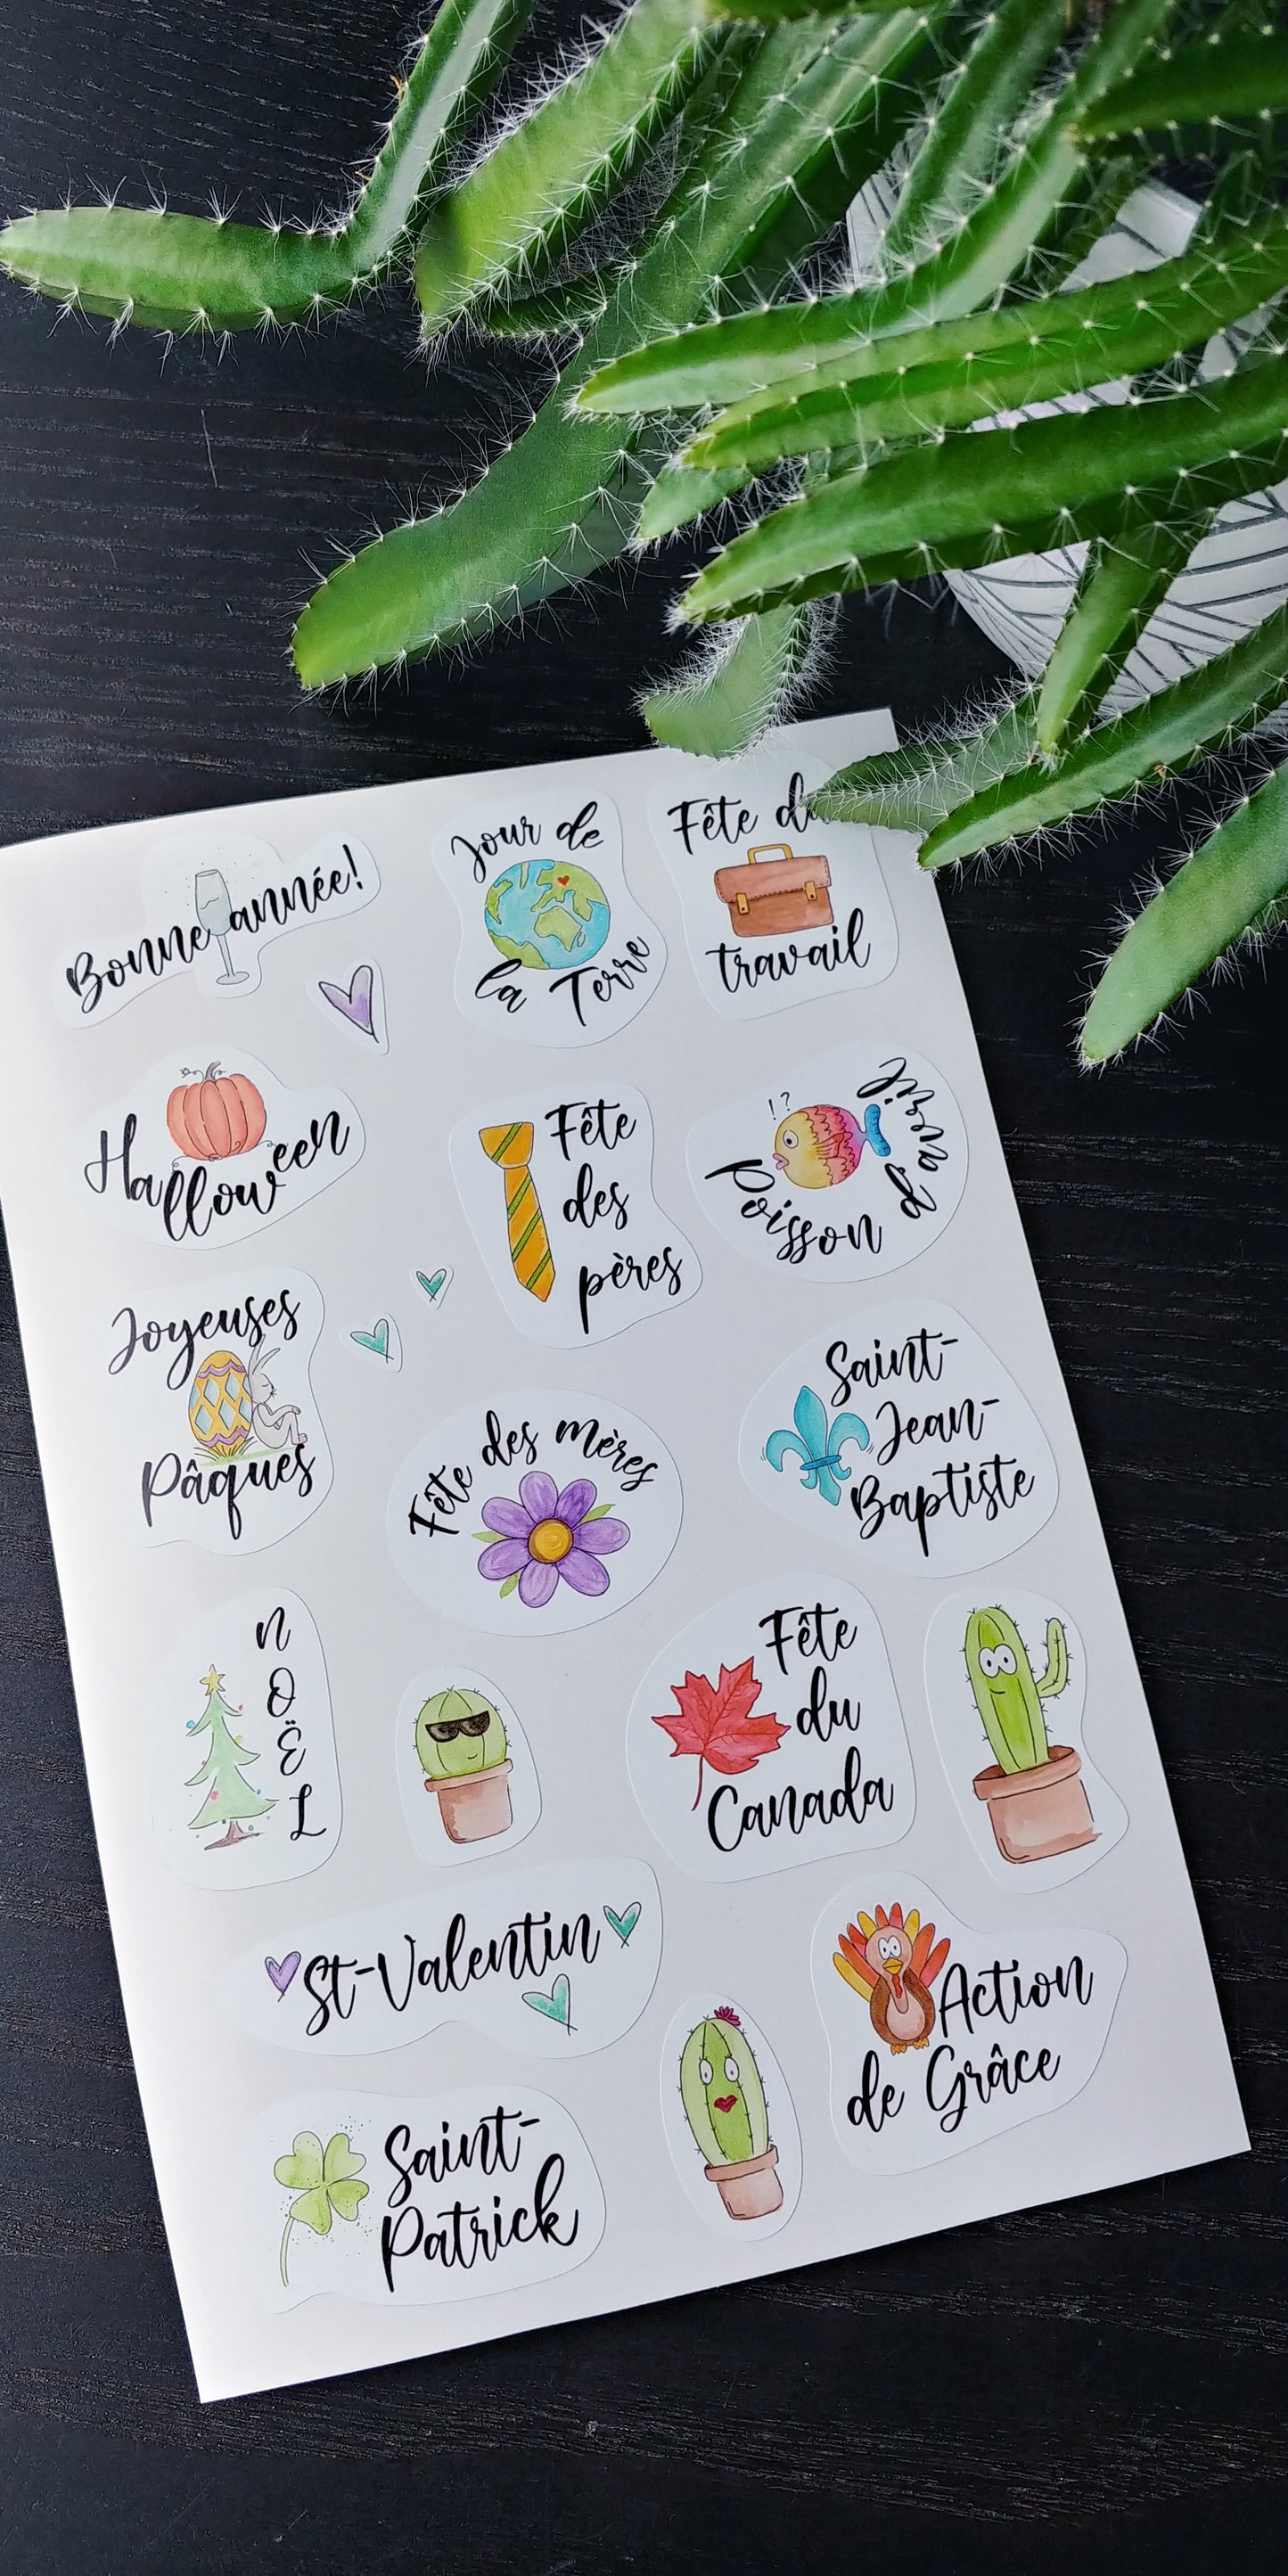 Bonne année!
Jour de
la Terre
Fête du
travail
Halloween
Fête
des
pères
!?
Poisson d'avril
Joyeuses
Pâques
Fête des mères
Saint-
Jean-
Baptiste
NOËL
Fête
du
Canada
St-Valentin
Action
de Grâce
Saint-
Patrick